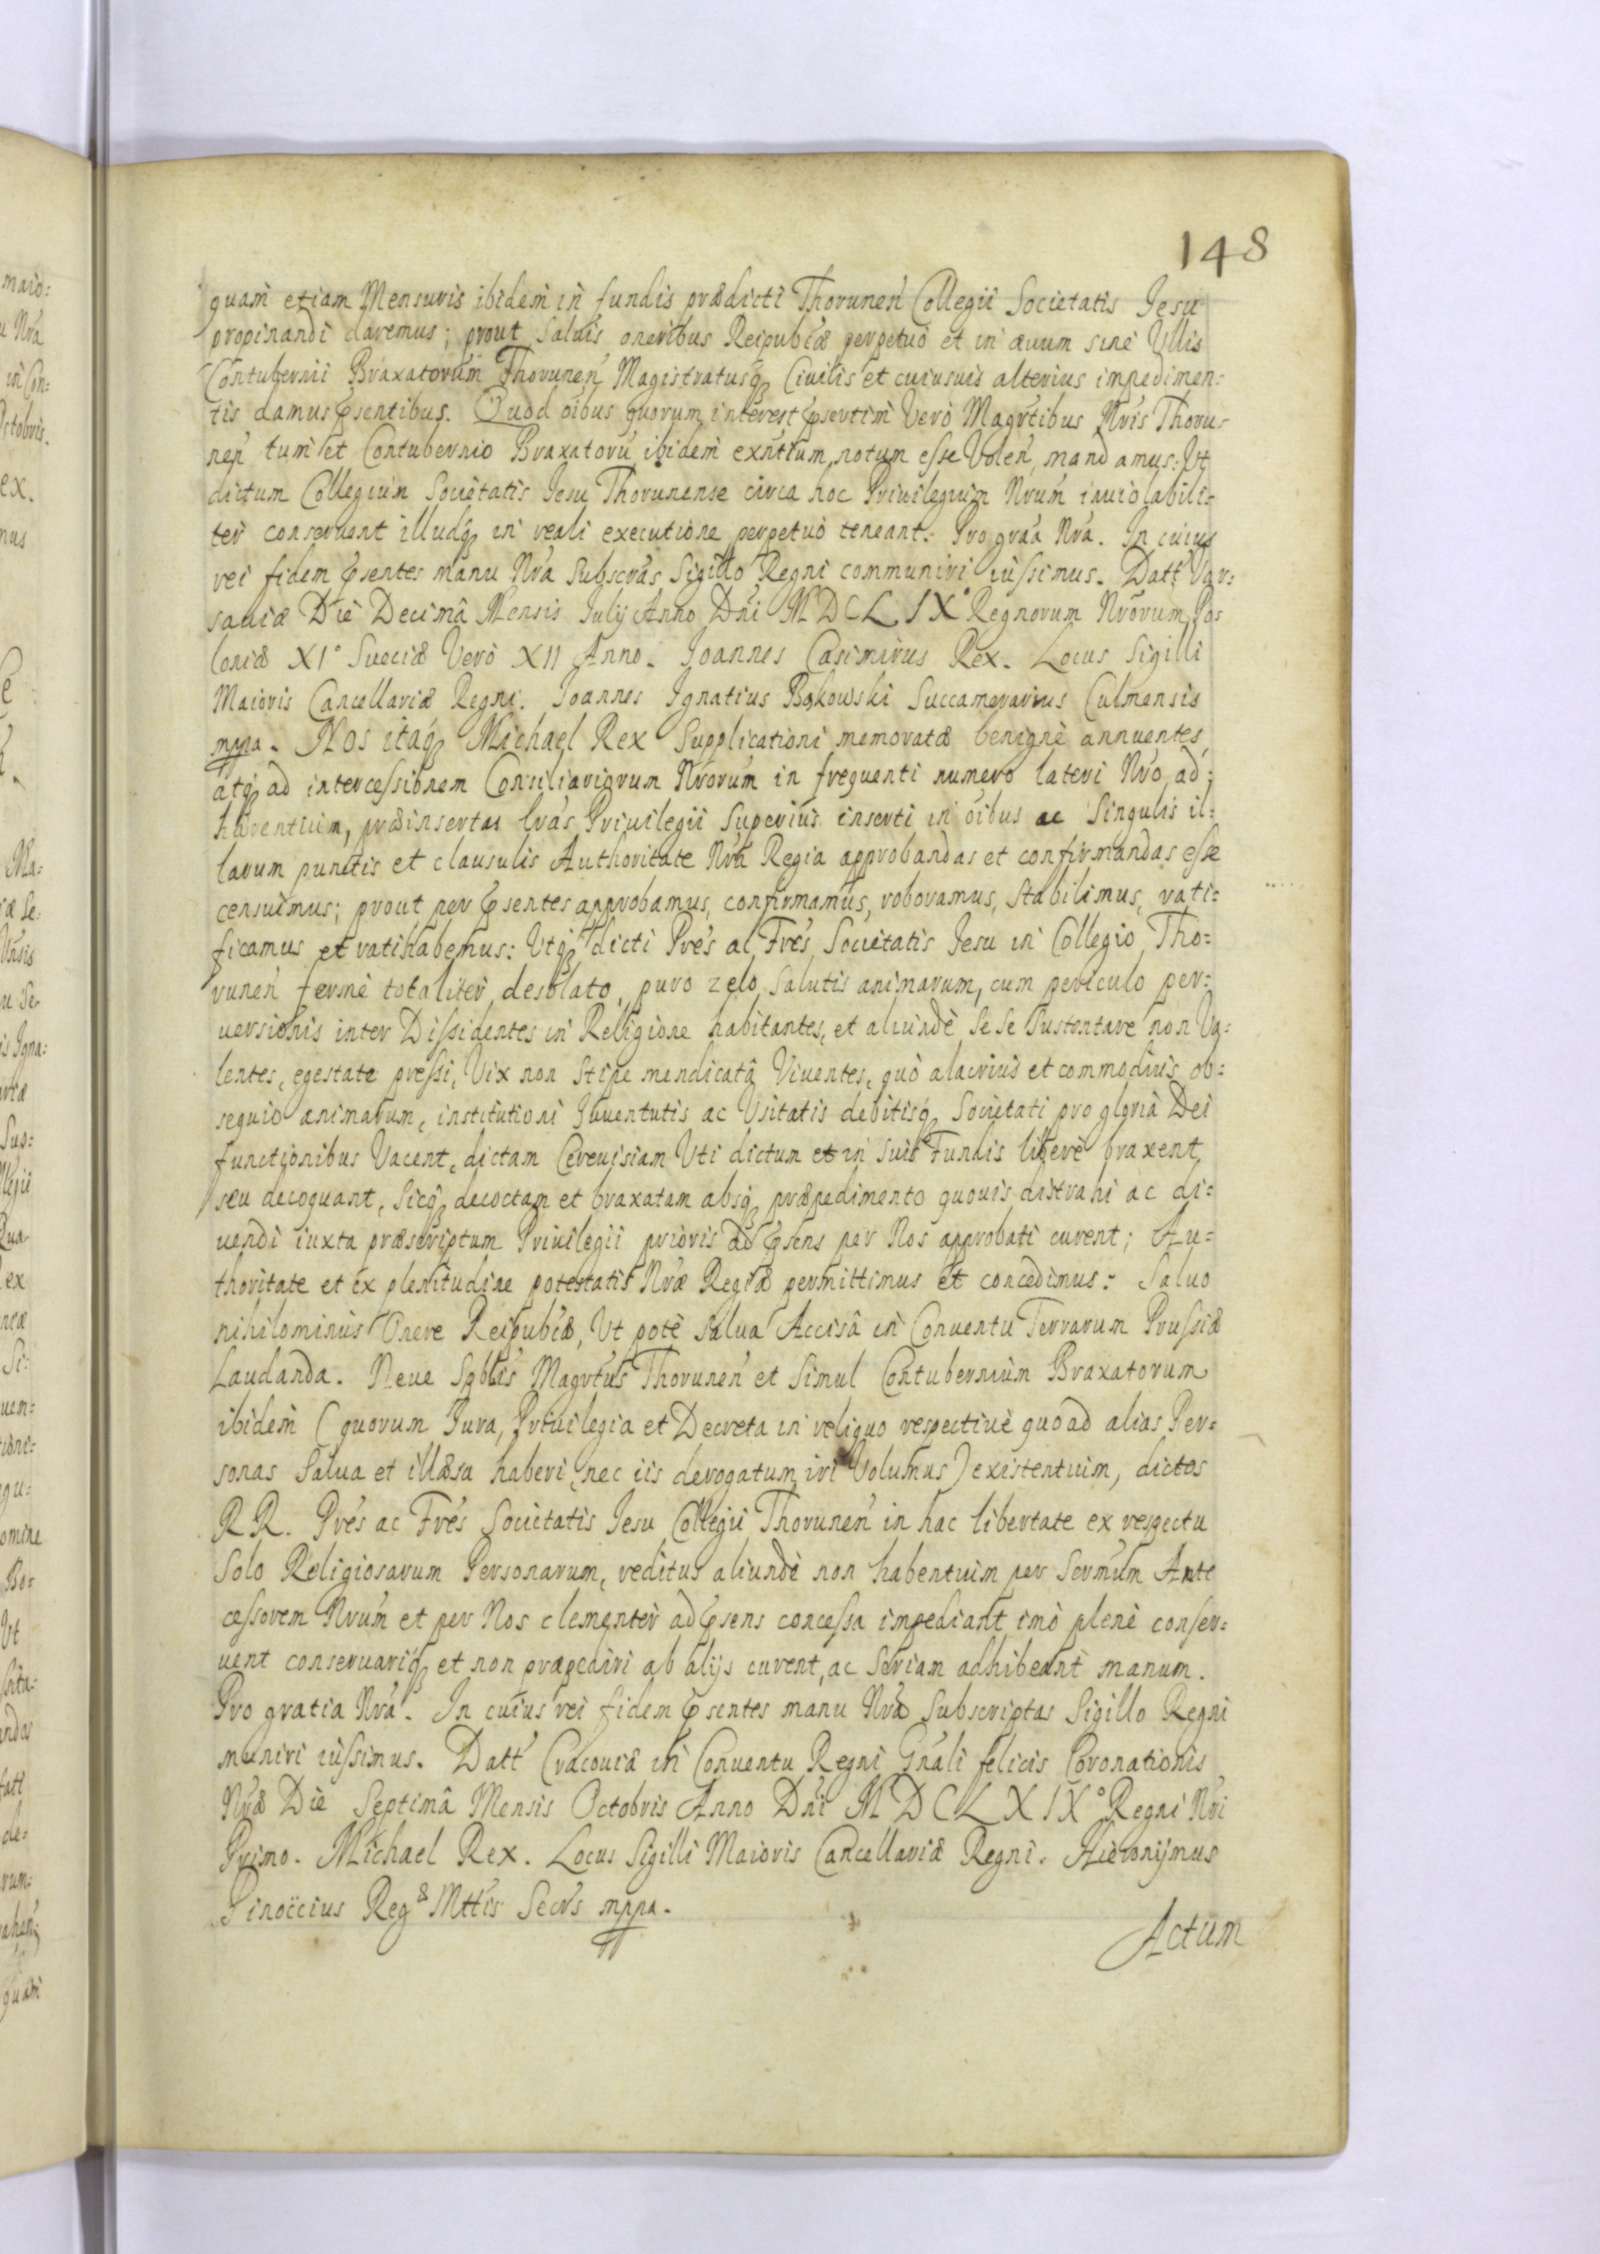 148
quam etiam Mensuris ibidem in fundis prædicti Thorunen Collegii Societatis Jesu
propinandi daremus; prout saluis oneribus Reipublæ perpetuo et in æuum sine Ullis
Contubernii Braxatorum Thorunen Magistratusq Ciuilis et cuiusuis alterius impedimen=
tis damus psentibus. Quod oibus quorum interest psertim Vero Magrtibus Nris Thoru=
nen tum et Contubernio Braxatoru ibidem exntium, notum esse Volen, mandamus: Ut
dictum Collegium Societatis Jesu Thorunense circa hoc Priuilegium Nrum inuiolabili=
ter conseruent illudq in reali executione perpetuo teneant. Pro graa Nra. In cuius
rei fidem psentes manu Nra Subscras Sigillo Regni communiri iussimus. Datt Var=
sauiæ Die Decimâ Mensis Julij Anno Dni MDCLIX° Regnorum Nrorum Po=
loniæ XI° Sueciæ Vero XII Anno. Joannes Casimirus Rex. Locus Sigilli
Maioris Cancellariæ Regni. Joannes Ignatius Bąkowski Succamerarius Culmensis
mppa. Nos itaq Michael Rex Supplicationi memoratæ benigne annuentes,
atq ad intercessionem Consiliariorum Nrorum in frequenti numero lateri Nro ad=
hærentium, præinsertas lras Priuilegii Superius inserti in oibus ac Singulis il=
larum punctis et clausulis Authoritate Nra Regia approbandas et confirmandas esse
censuimus; prout per psentes approbamus, confirmamus, roboramus, stabilimus, rati=
ficamus et ratihabemus: Utq dicti Pres ac Fres Societatis Jesu in Collegio Tho=
runen ferme totaliter desolato, puro zelo Salutis animarum, cum periculo per=
uersionis inter Dissidentes in Religione habitantes, et aliunde Se Se Sustentare non Va=
lentes, egestate pressi, Vix non Stipe mendicatâ Viuentes, quo alacrius et commodius ob=
sequio animarum, institutioni Iuuentutis ac Usitatis debitisq Societati pro gloria Dei
functionibus Vacent, dictam Cereuisiam Uti dictum et in suis Fundis libere braxent
seu decoquant, sicq decoctam et braxatam absq præpedimento quouis distrahi ac di=
uendi iuxta præscriptum Priuilegii prioris ad psens per Nos approbati curent; Au=
thoritate et ex plenitudine potestatis Nræ Regiæ permittimus et concedimus: Saluo
nihilominus Onere Reipublæ, Ut pote salua Accisâ in Conuentu Terrarum Prussiæ
Laudanda. Neue Spblis Magrtus Thorunen et Simul Contubernium Braxatorum
ibidem (quorum Jura, Priuilegia et Decreta in reliquo respectiue quoad alias Per=
sonas salua et illæsa haberi, nec iis derogatum iri Volumus) existentium, dictos
RR. Pres ac Fres Societatis Jesu Collegii Thorunen in hac libertate ex respectu
Solo Religiosarum Personarum, reditus aliunde non habentium per Sermum Ante
cessorem Nrum et per Nos clementer ad psens concessa impediant imo plene conser=
uent conseruariq et non præpediri ab alijs curent, ac Seriam adhibeant manum.
Pro gratia Nra. In cuius rei fidem psentes manu Nra Subscriptas Sigillo Regni
muniri iussimus. Datt Cracouiæ in Conuentu Regni Gnali felicis Coronationis
Nræ Die Septimâ Mensis Octobris Anno Dni MDCLXIX° Regni Nri
Primo. Michael Rex. Locus Sigilli Maioris Cancellariæ Regni. Hieronijmus
Pinoccius Regæ Mttis Secrs mppa.
Actum